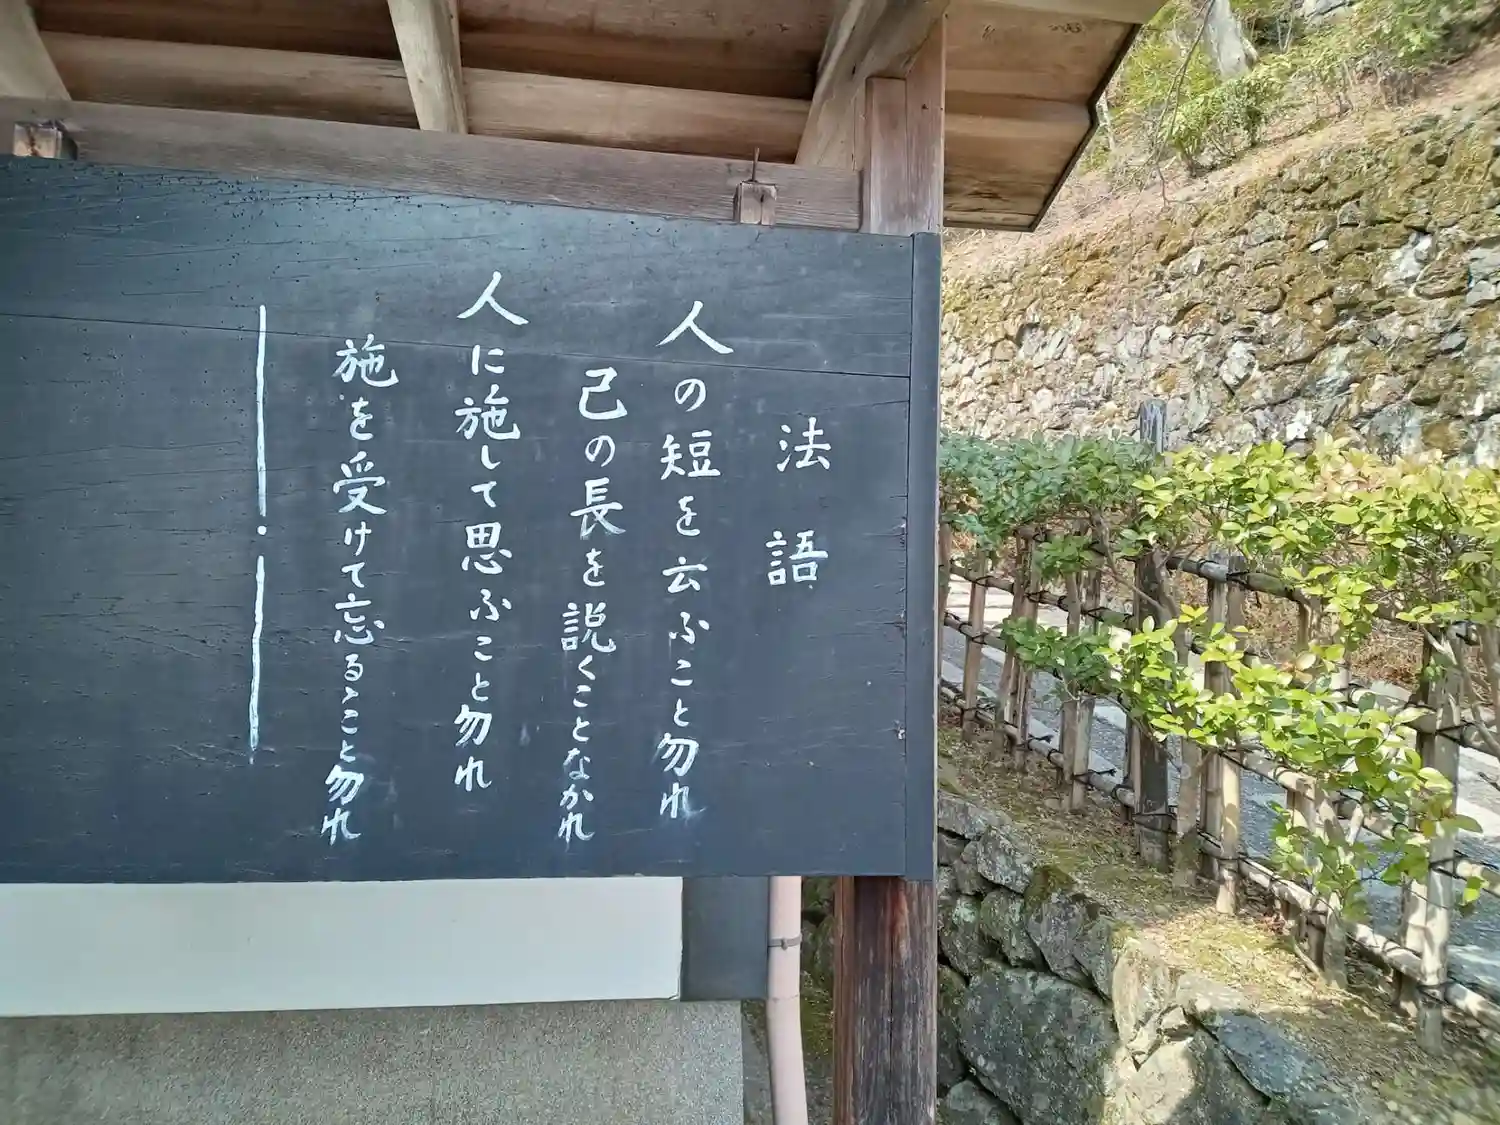 法語
人の短を云ふこと勿れ
己の長を説くことなかれ
人に施して思ふこと勿れ
施を受けて忘るゝこと勿れ